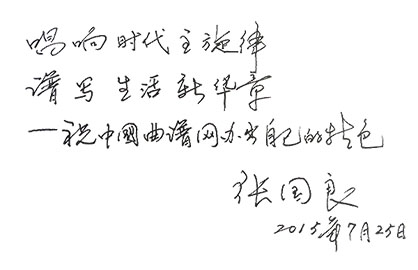 唱响时代主旋律
谱写生活新华章
一祝中國曲谱网办出自己的特色
张国良
2015年7月25日